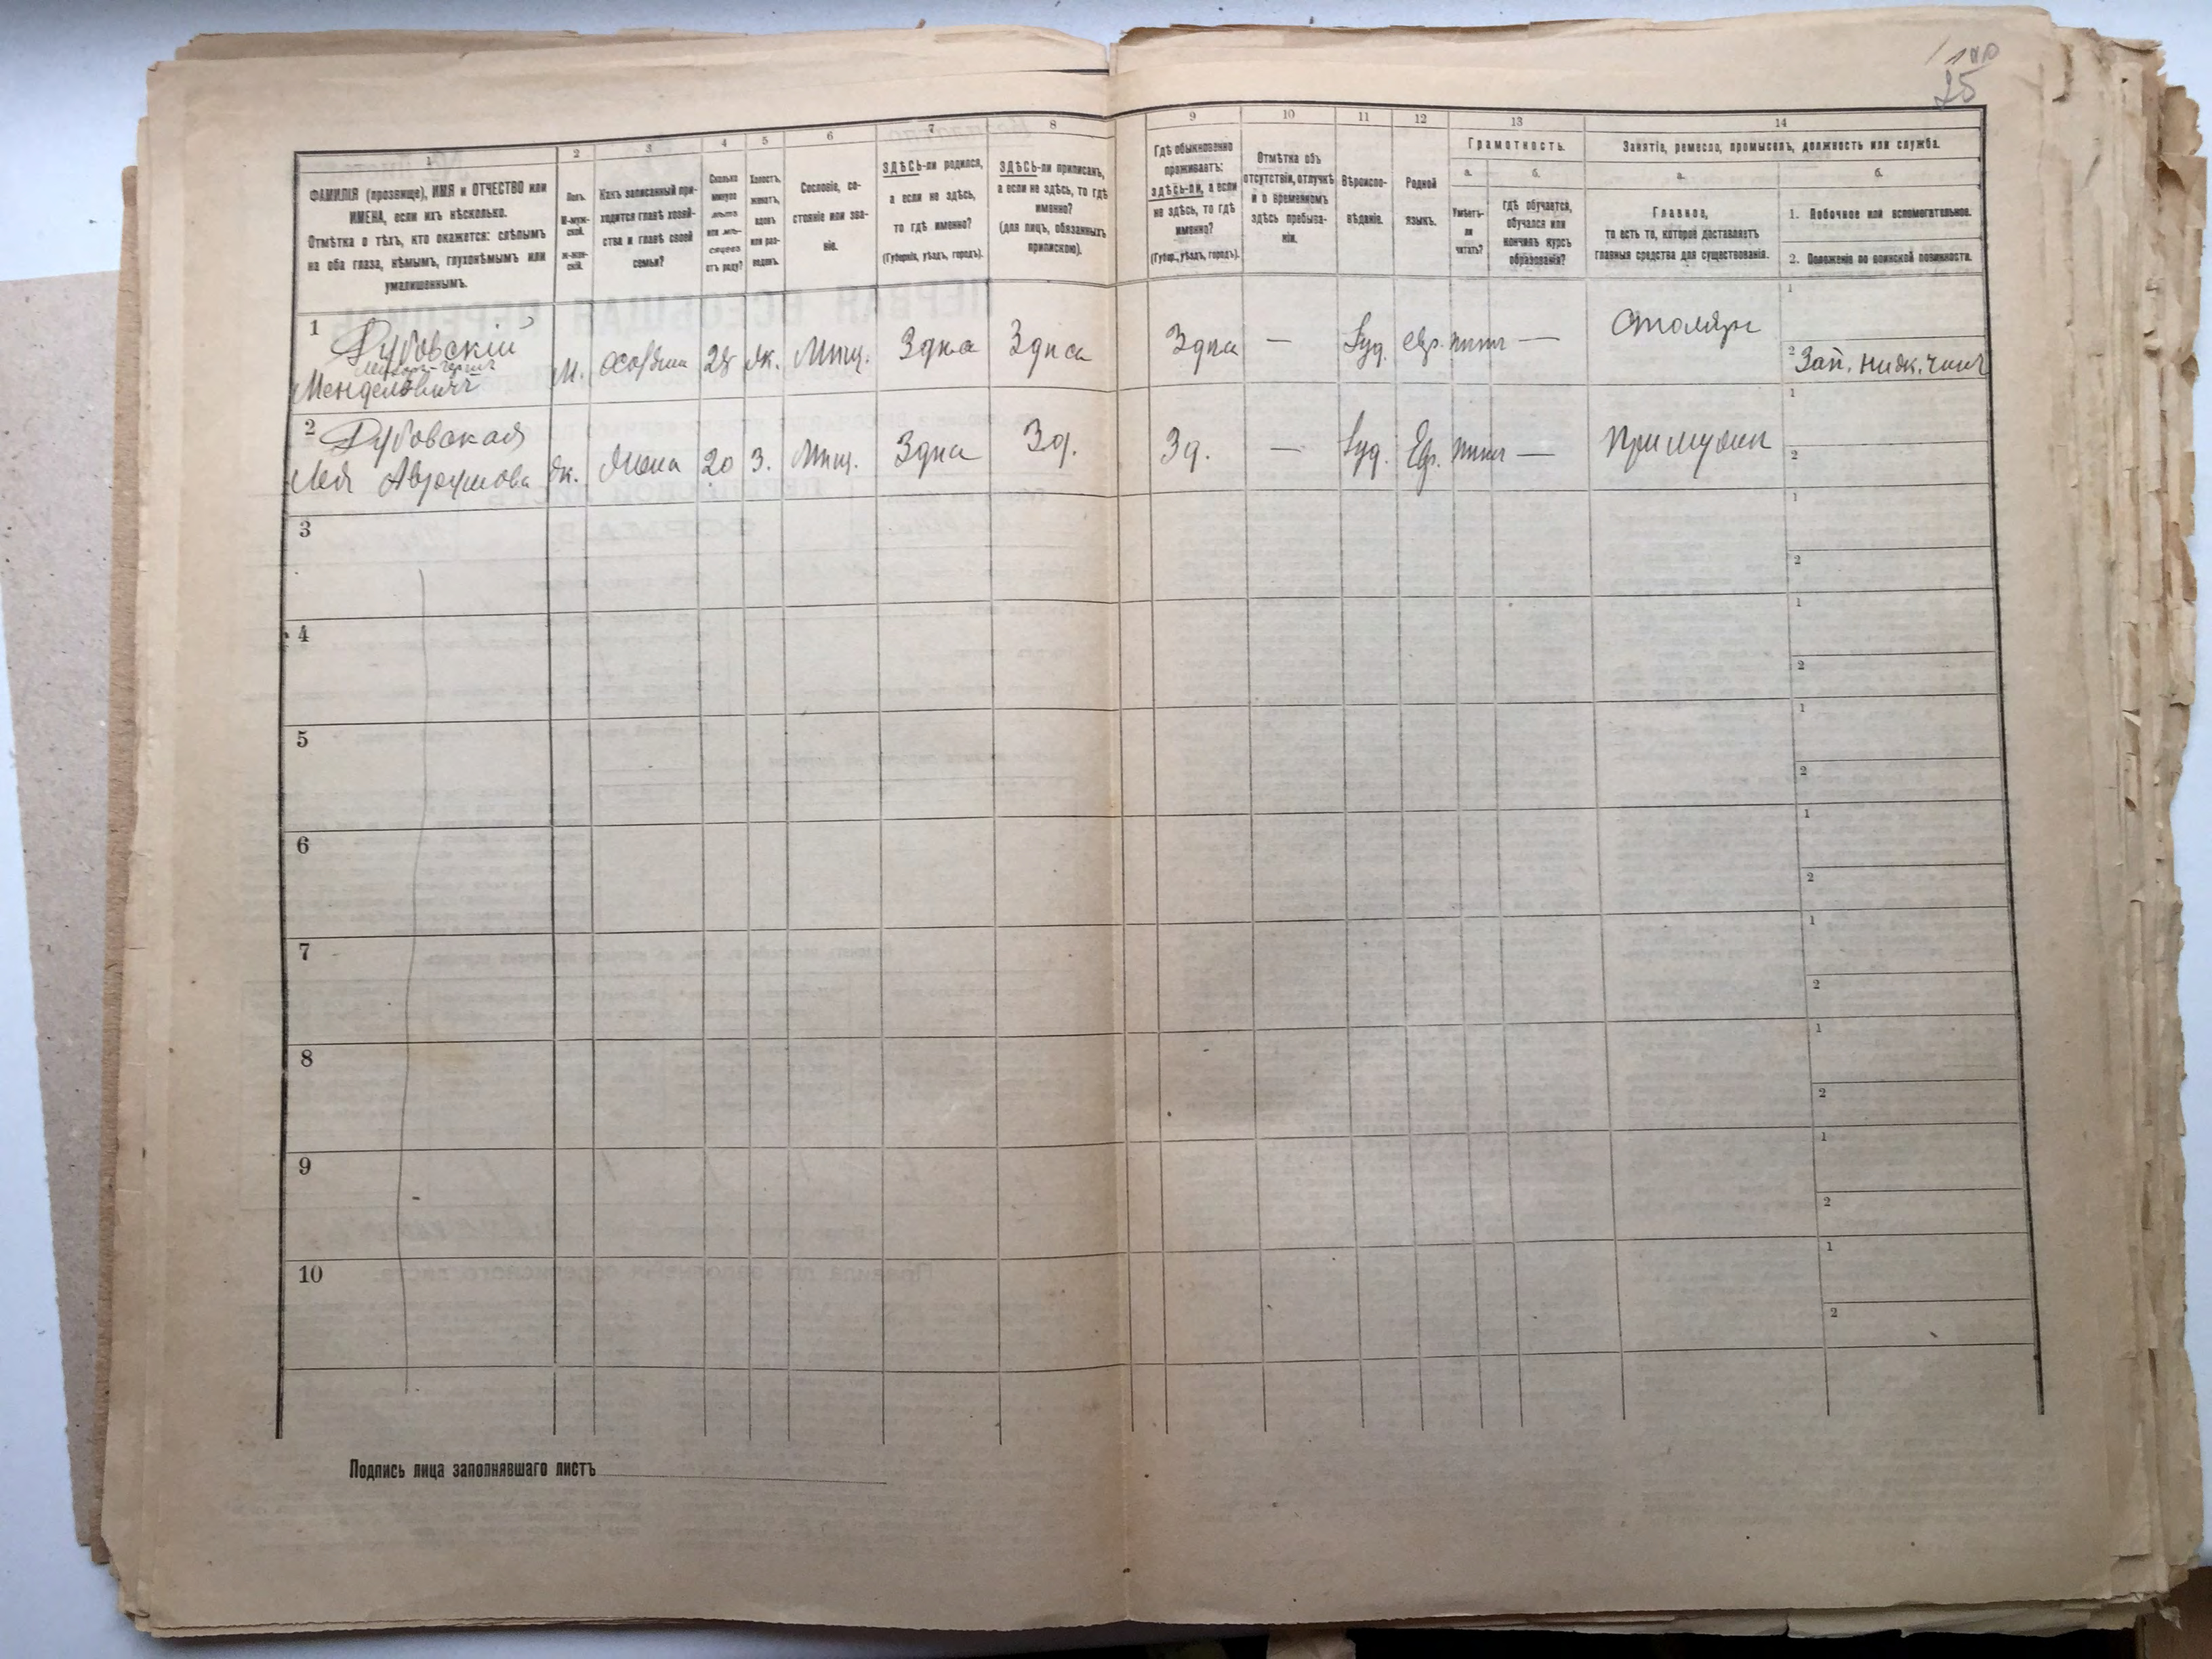 25
1
ФАМИЛІЯ (прозвище), ИМЯ и ОТЧЕСТВО или
ИМЕНА, если ихъ нѣсколько.
Отмѣтка о тѣхъ, кто окажется: слѣпымъ
на оба глаза, нѣмымъ, глухонѣмымъ или
умалишеннымъ.
2
Полъ.
М-муж-
ской.
Ж-жен-
скій.
3
Какъ записанный при-
ходится главѣ хозяй-
ства и главѣ своей
семьи?
4
Сколько
минуло
лѣтъ
или мѣ-
сяцевъ
отъ роду?
5
Холостъ,
женатъ,
вдовъ
или раз-
веденъ.
6
Сословіе, со-
стояніе или зва-
ніе.
7
ЗДѢСЬ-ли родился,
а если не здѣсь,
то гдѣ именно?
(Губернія, уѣздъ, городъ).
8
ЗДѢСЬ-ли приписанъ,
а если не здѣсь, то гдѣ
именно?
(для лицъ, обязанныхъ
припискою).
9
Гдѣ обыкновенно
проживаетъ:
здѣсь-ли, а если
не здѣсь, то гдѣ
именно?
(Губер., уѣздъ, городъ).
10
Отмѣтка объ
отсутствіи, отлучкѣ
и о временномъ
здѣсь пребыва-
ніи.
11
Вѣроиспо-
вѣданіе.
12
Родной
языкъ.
13
Грамотность.
а.
Умѣетъ-
ли
читать?
б.
гдѣ обучается,
обучался или
кончилъ курсъ
образованія?
14
Занятіе, ремесло, промыселъ, должность или служба.
а.
Главное,
то есть то, которое доставляетъ
главныя средства для существованія.
б.
1. Побочное или вспомогательное.
2. Положеніе по воинской повинности.
1
Дубовскій
Менделовичъ
м. хозяин 28 ж. Мѣщ. Здѣсь Здѣсь Здѣсь — Іуд. евр. — Столяръ
1
2 Зап. нижн. чинъ
2
Дубовская
Лея Аврумова
ж. Жена 20 з. Мѣщ. Здѣсь Зд. Зд. — Іуд. Евр. — При мужѣ
1
2
3
1
2
4
1
2
5
1
2
6
1
2
7
1
2
8
1
2
9
1
2
10
1
2
Подпись лица заполнявшаго листъ